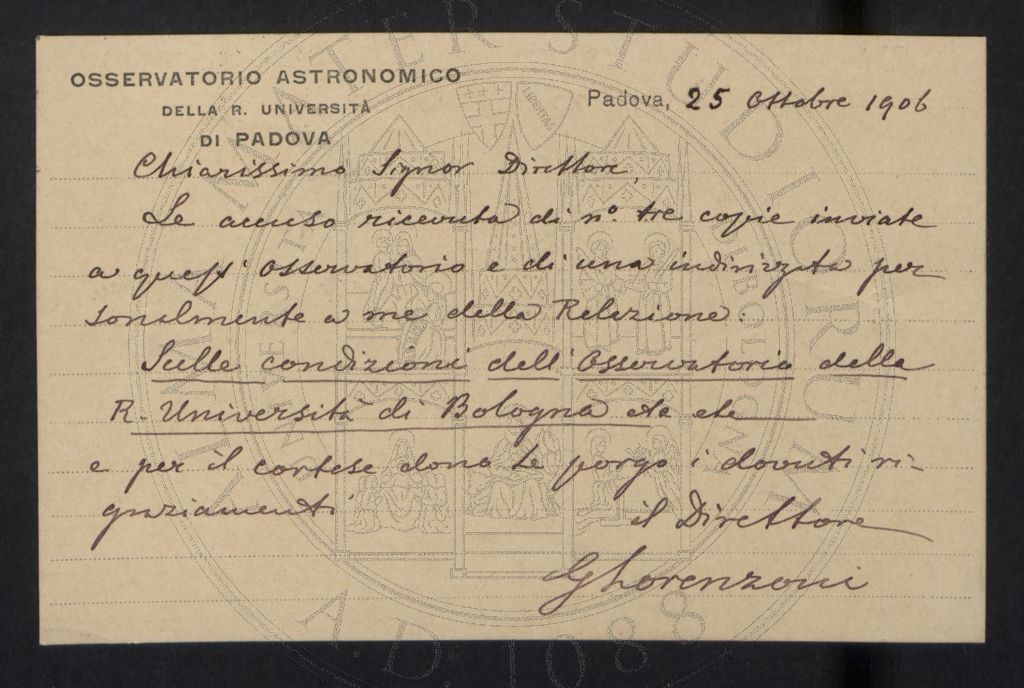 OSSERVATORIO ASTRONOMICO
DELLA R. UNIVERSITÀ
DI PADOVA
Padova, 25 Ottobre 1906
Chiarissimo Signor Direttore,
Le accuso ricevuta di nº. tre copie inviate
a quest' Osservatorio e di una indirizzata per
sonalmente a me della Relazione:
Sulle condizioni dell' Osservatorio della
R. Università di Bologna etc etc
e per il cortese dono Le porgo i dovuti ri-
graziamenti
il Direttore
GLorenzoni
ALMA MATER STUDIORUM
A.D. 1088
LIBERTAS